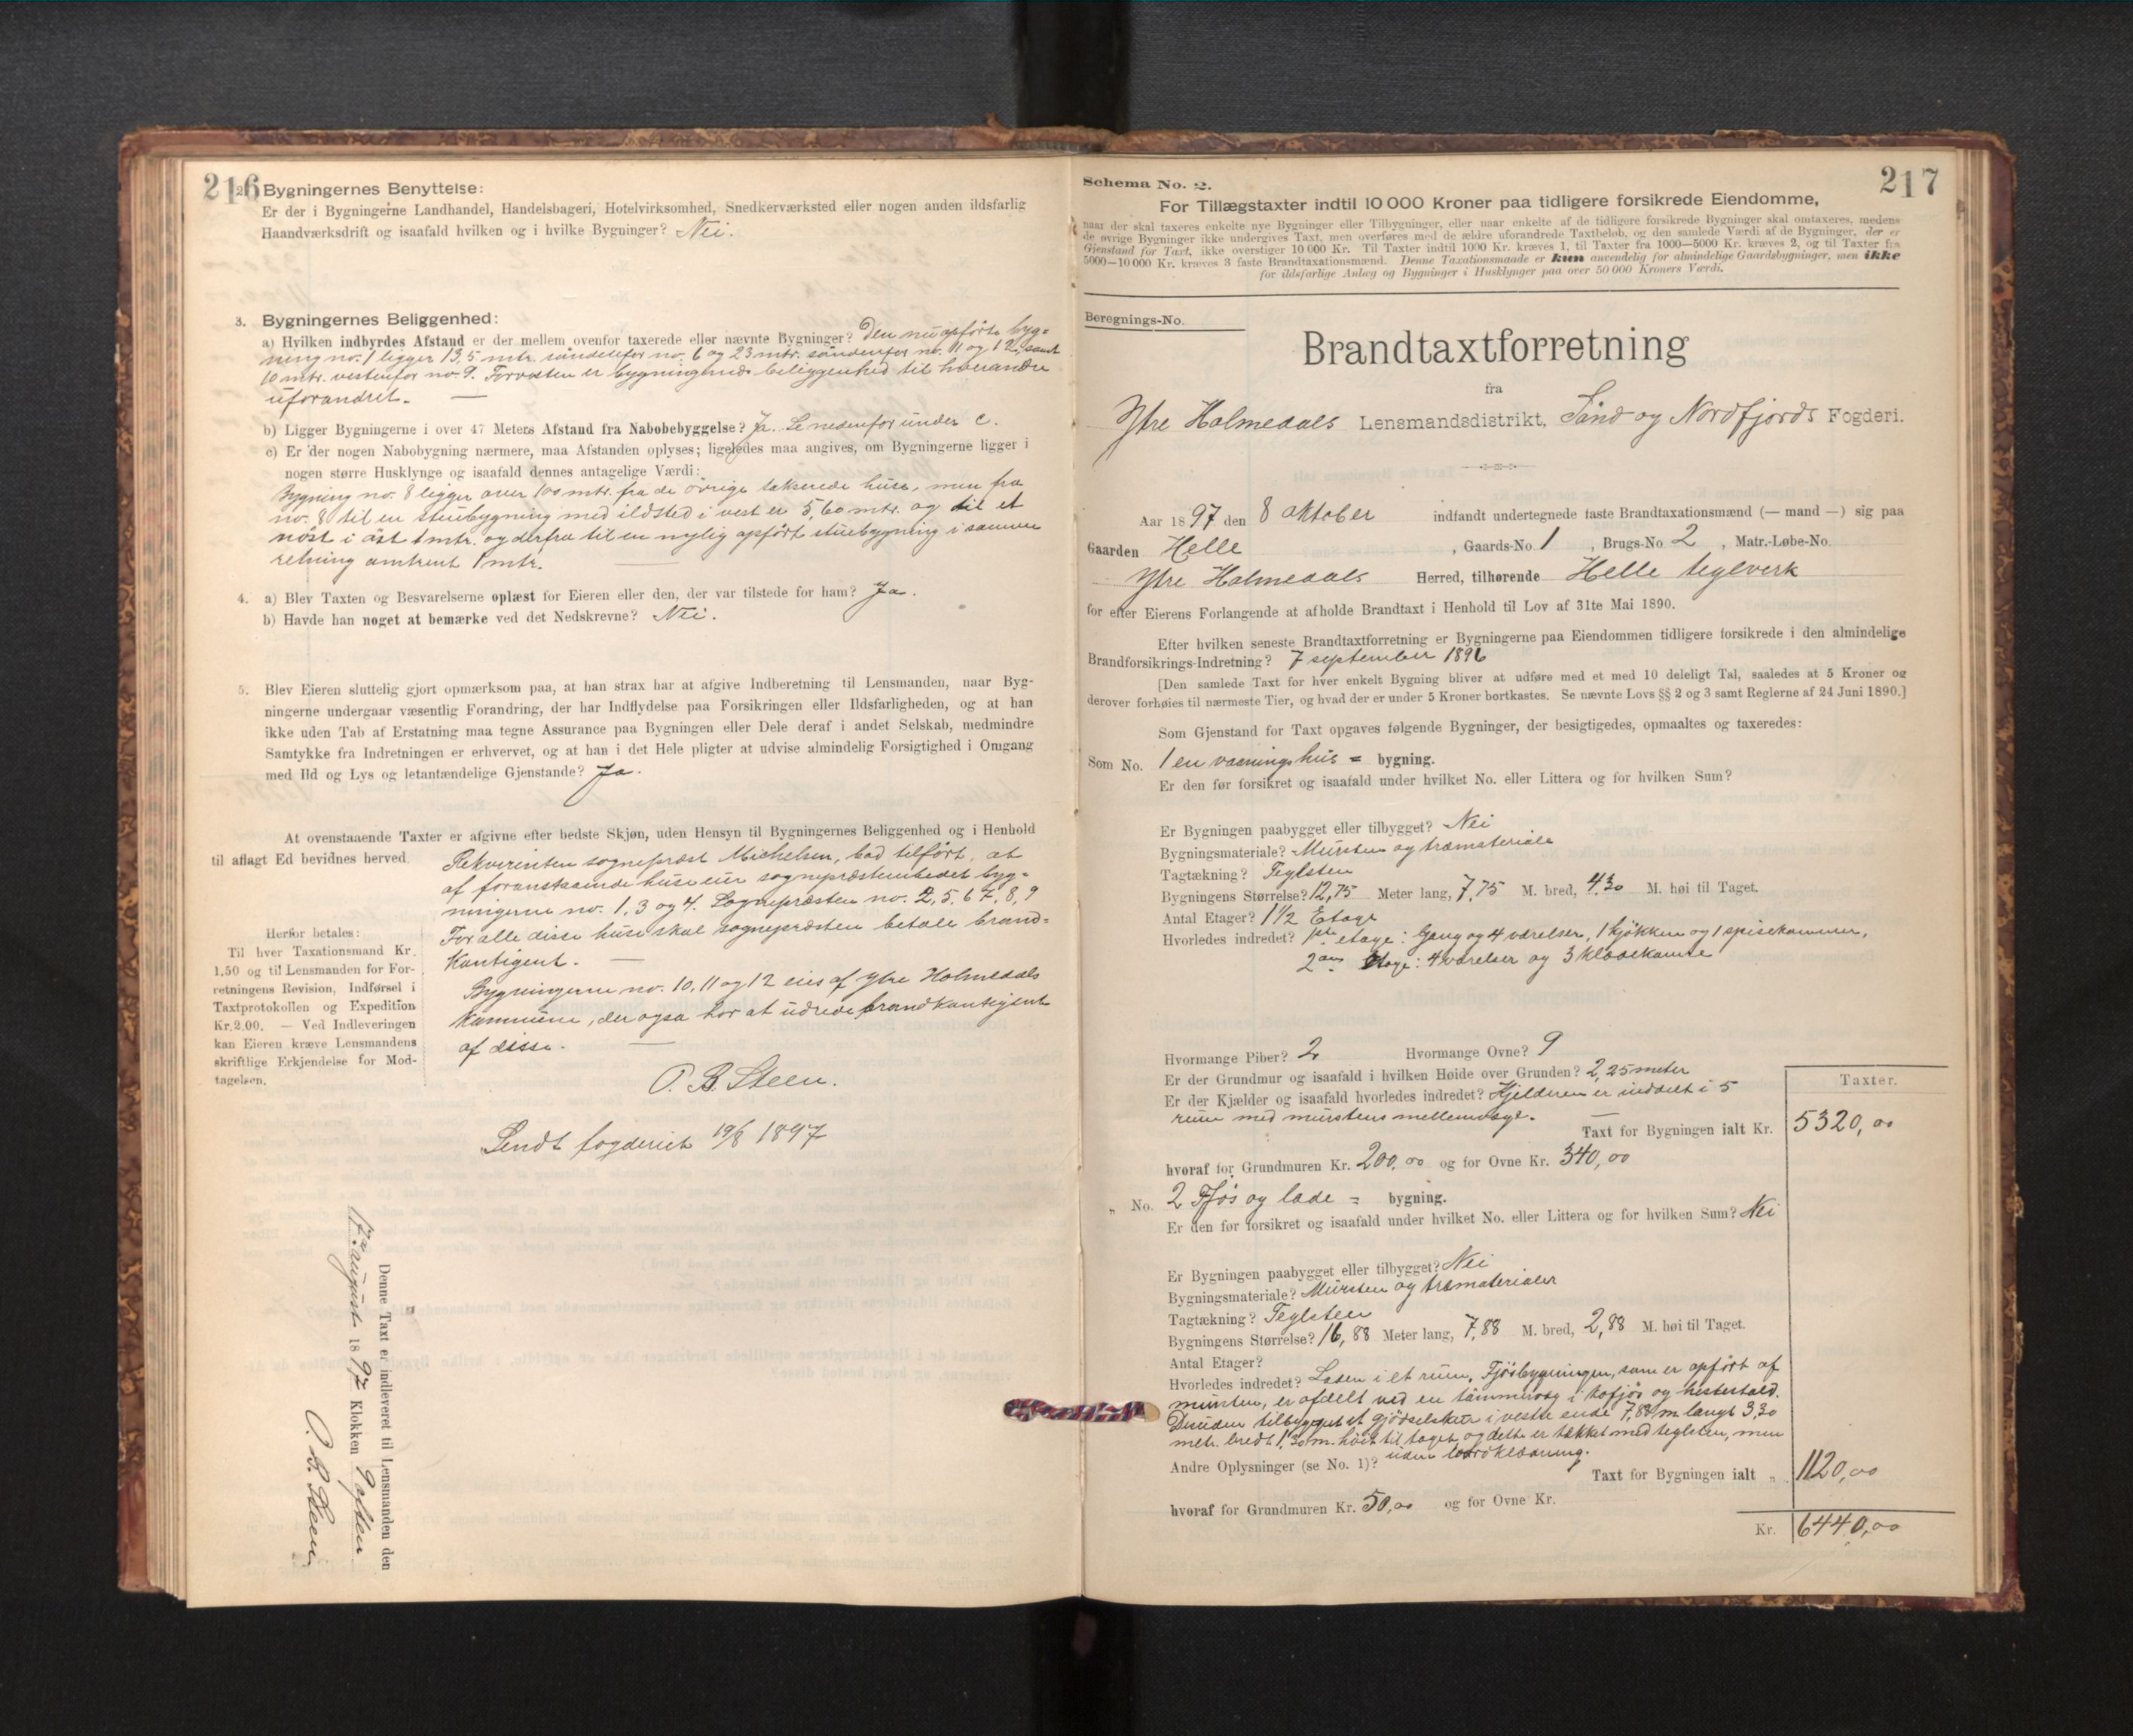 216
2. Bygningernes Benyttelse:
Er der i Bygningerne Landhandel, Handelsbageri, Hotelvirksomhed, Snedkerværksted eller nogen anden ildsfarlig
Haandværksdrift og isaafald hvilken og i hvilke Bygninger? Nei.
3. Bygningernes Beliggenhed:
a) Hvilken indbyrdes Afstand er der mellem ovenfor taxerede eller nævnte Bygninger? Den nyopførte byg=
ning no. 1 ligger 13,5 mtr. søndenfor no. 6 og 23 mtr. søndenfor no. 11 og 12, samt
10 mtr. vestenfor no. 9. Forresten er bygningernes beliggenhed til hverandre
uforandret. —
b) Ligger Bygningerne i over 47 Meters Afstand fra Nabobebyggelse? Ja. Se nedenfor under c.
c) Er der nogen Nabobygning nærmere, maa Afstanden oplyses; ligeledes maa angives, om Bygningerne ligger i
nogen større Husklynge og isaafald dennes antagelige Værdi:
Bygning no. 8 ligger over 100 mtr. fra de øvrige takserede huse, men fra
no. 8 til en stuebygning med ildsted i vest er 5,60 mtr. og til et
nøst i øst 1 mtr. og derfra til en nylig opført stuebygning i samme
retning omtrent 1 mtr. —
4. a) Blev Taxten og Besvarelserne oplæst for Eieren eller den, der var tilstede for ham? Ja.
b) Havde han noget at bemærke ved det Nedskrevne? Nei.
5. Blev Eieren sluttelig gjort opmærksom paa, at han strax har at afgive Indberetning til Lensmanden, naar Byg-
ningerne undergaar væsentlig Forandring, der har Indflydelse paa Forsikringen eller Ildsfarligheden, og at han
ikke uden Tab af Erstatning maa tegne Assurance paa Bygningen eller Dele deraf i andet Selskab, medmindre
Samtykke fra Indretningen er erhvervet, og at han i det Hele pligter at udvise almindelig Forsigtighed i Omgang
med Ild og Lys og letantændelige Gjenstande? Ja.
At ovenstaaende Taxter er afgivne efter bedste Skjøn, uden Hensyn til Bygningernes Beliggenhed og i Henhold
til aflagt Ed bevidnes herved.
Rekvirenten sogneprest Michelsen, bad tilført, at
af foranstaaende huse eier sogneprestembedet byg=
ningerne no. 1, 3 og 4. Sognepresten no. 2, 5, 6 7, 8, 9
For alle disse huse skal sognepresten betale brand=
kontigent. —
Bygningerne no. 10, 11 og 12 eies af Ytre Holmedals
kommune, der ogsa har at udrede brandkontigent
af disse. —
O. B. Steen.
Sendt fogderiet 19/8 1897
Herfor betales:
Til hver Taxationsmand Kr.
1.50 og til Lensmanden for For-
retningens Revision, Indførsel i
Taxtprotokollen og Expedition
Kr. 2.00. — Ved Indleveringen
kan Eieren kræve Lensmandens
skriftlige Erkjendelse for Mod-
tagelsen.
Denne Taxt er indleveret til Lensmanden den
17de august 1897 Klokken 9 aften
O. B. Steen
217
Schema No. 2.
For Tillægstaxter indtil 10 000 Kroner paa tidligere forsikrede Eiendomme,
naar der skal taxeres enkelte nye Bygninger eller Tilbygninger, eller naar enkelte af de tidligere forsikrede Bygninger skal omtaxeres, medens
de øvrige Bygninger ikke undergives Taxt, men overføres med de ældre uforandrede Taxtbeløb, og den samlede Værdi af de Bygninger, der er
Gjenstand for Taxt, ikke overstiger 10 000 Kr. Til Taxter indtil 1000 Kr. kræves 1, til Taxter fra 1000—5000 Kr. kræves 2, og til Taxter fra
5000—10 000 Kr. kræves 3 faste Brandtaxationsmænd. Denne Taxationsmaade er kun anvendelig for almindelige Gaardsbygninger, men ikke
for ildsfarlige Anlæg og Bygninger i Husklynger paa over 50 000 Kroners Værdi.
Beregnings-No.
Brandtaxtforretning
fra
Ytre Holmedals Lensmandsdistrikt, Sønd og Nordfjords Fogderi.
Aar 1897 den 8 oktober indfandt undertegnede faste Brandtaxationsmænd (— mand —) sig paa
Gaarden Helle, Gaards-No. 1, Brugs-No 2, Matr.-Løbe-No.
Ytre Holmedals Herred, tilhørende Helle teglverk
for efter Eierens Forlangende at afholde Brandtaxt i Henhold til Lov af 31te Mai 1890.
Efter hvilken seneste Brandtaxtforretning er Bygningerne paa Eiendommen tidligere forsikrede i den almindelige
Brandforsikrings-Indretning? 7 september 1896
[Den samlede Taxt for hver enkelt Bygning bliver at udføre med et med 10 deleligt Tal, saaledes at 5 Kroner og
derover forhøies til nærmeste Tier, og hvad der er under 5 Kroner bortkastes. Se nævnte Lovs §§ 2 og 3 samt Reglerne af 24 Juni 1890.]
Som Gjenstand for Taxt opgaves følgende Bygninger, der besigtigedes, opmaaltes og taxeredes:
Som No. 1 en vaaningshus = bygning.
Er den før forsikret og isaafald under hvilket No. eller Littera og for hvilken Sum?
Er Bygningen paabygget eller tilbygget? Nei
Bygningsmateriale? Mursten og træmateriale
Tagtækning? Teglsten
Bygningens Størrelse? 12,75 Meter lang, 7,75 M. bred, 4,30 M. høi til Taget.
Antal Etager? 1 1/2 Etage
Hvorledes indredet? 1ste etage: Gang og 4 værelser, 1 kjøkken og 1 spisekammer,
2den Etage: 4 værelser og 3 klædekamre
Hvormange Piber? 2 Hvormange Ovne? 9
Er der Grundmur og isaafald i hvilken Høide over Grunden? 2,25 meter
Er der Kjælder og isaafald hvorledes indredet? Kjelderen er inddelt i 5
rum med murstens mellemvæge. —
Taxter.
Taxt for Bygningen ialt Kr. 5320,00
hvoraf for Grundmuren Kr. 200,00 og for Ovne Kr. 340,00
„ No. 2 Fjøs og lade = bygning.
Er den før forsikret og isaafald under hvilket No. eller Littera og for hvilken Sum? Nei
Er Bygningen paabygget eller tilbygget? Nei
Bygningsmateriale? Mursten og træmaterialer
Tagtækning? Teglsteen
Bygningens Størrelse? 16,88 Meter lang, 7,88 M. bred, 2,88 M. høi til Taget.
Antal Etager?
Hvorledes indredet? Laden i et rum, Fjøsbygningen, som er opført af
mursten, er afdelt ved en tømmervæg i kofjøs og hestestald.
Desuden tilbygget et gjødselskur i vestre ende 7,88 m langt 3,30
metr. bredt 1,30 m. høit til taget og dette er tækket med teglsten, men
uden bordklædning.
Andre Oplysninger (se No. 1)?
Taxt for Bygningen ialt „ 1120,00
hvoraf for Grundmuren Kr. 50,00 og for Ovne Kr.
Kr. 6440,00